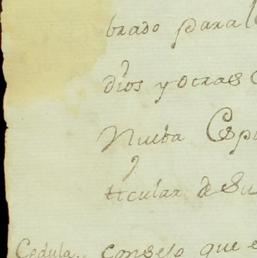 brado para l
dios y otras
Nueba Esp
ticular de Su
Cedula consejo que e